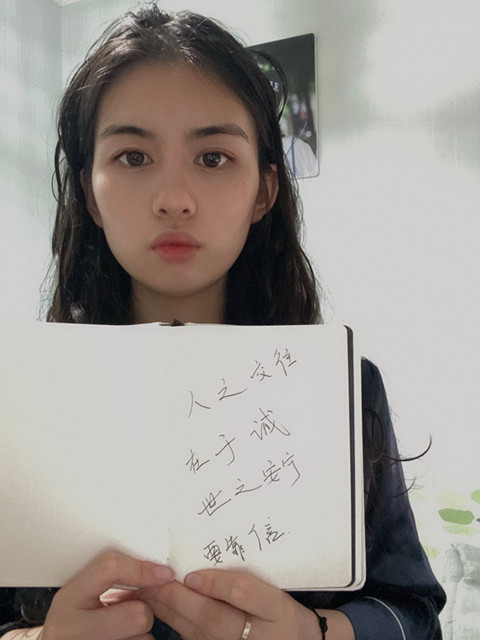 人之交往
在于诚
世之安宁
要靠信.